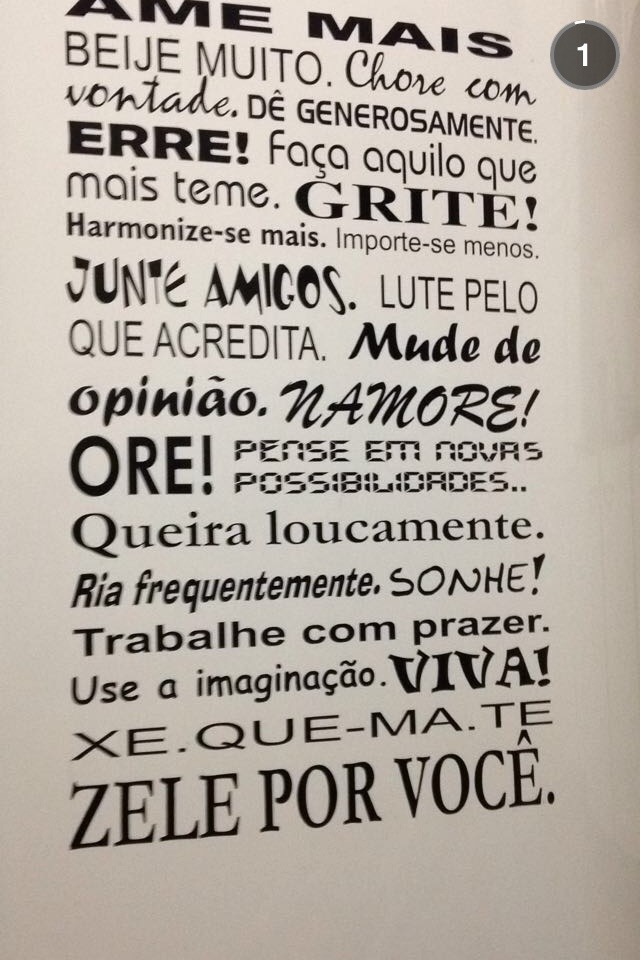 AME MAIS
BEIJE MUITO. Chore com
vontade. DÊ GENEROSAMENTE.
ERRE! Faça aquilo que
mais teme. GRITE!
Harmonize-se mais. Importe-se menos.
JUNTE AMIGOS. LUTE PELO
QUE ACREDITA. Mude de
opinião. NAMORE!
ORE! PENSE EM NOVAS
POSSIBILIDADES..
Queira loucamente.
Ria frequentemente. SONHE!
Trabalhe com prazer.
Use a imaginação. VIVA!
XE.QUE-MA.TE
ZELE POR VOCÊ.
1